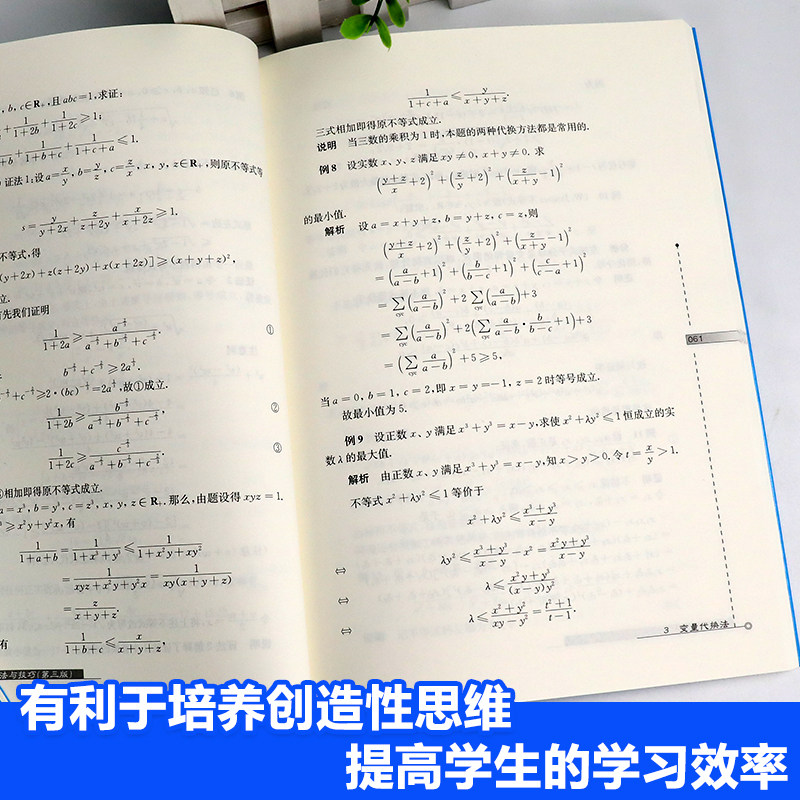 b, c∈R₊, 且 abc=1, 求证:
1/(1+2b) + 1/(1+2c) ≥ 1;
1/(1+b+c) + 1/(1+c+a) ≤ 1.
证法1: 设 a=x/y, b=y/z, c=z/x, x, y, z∈R₊, 则原不等式等
s = y/(y+2x) + z/(z+2y) + x/(x+2z) ≥ 1.
不等式, 得
(y+2x)+z(z+2y)+x(x+2z)] ≥ (x+y+z)²,
立.
首先我们证明
1/(1+2a) ≥ a^(-1/3)/(a^(-1/3)+b^(-1/3)+c^(-1/3)). ①
b^(-1/3)+c^(-1/3) ≥ 2a^(1/6).
+c^(-1/3) ≥ 2·(bc)^(-1/6) = 2a^(1/6), 故①成立.
1/(1+2b) ≥ b^(-1/3)/(a^(-1/3)+b^(-1/3)+c^(-1/3)), ②
1/(1+2c) ≥ c^(-1/3)/(a^(-1/3)+b^(-1/3)+c^(-1/3)). ③
相加即得原不等式成立.
a=x³, b=y³, c=z³, x, y, z∈R₊. 那么, 由题设得 xyz=1.
≥x²y+y²x, 有
1/(1+a+b) = 1/(1+x³+y³) ≤ 1/(1+x²y+xy²)
= 1/(xyz+x²y+y²x) = 1/(xy(x+y+z))
= z/(x+y+z).
有 1/(1+b+c) ≤ x/(x+y+z),
法与技巧(第三版)
1/(1+c+a) ≤ y/(x+y+z).
三式相加即得原不等式成立.
说明 当三数的乘积为1时, 本题的两种代换方法都是常用的.
例8 设实数 x、y、z 满足 xy≠0, x+y≠0. 求
((y+z)/x+2)² + (z/y+2)² + (z/(x+y)-1)²
的最小值.
解析 设 a=x+y+z, b=y+z, c=z, 则
((y+z)/x+2)² + (z/y+2)² + (z/(x+y)-1)²
= (a/(a-b)+1)² + (b/(b-c)+1)² + (c/(c-a)+1)²
= ∑cyc (a/(a-b))² + 2∑cyc (a/(a-b)) + 3
= ∑cyc (a/(a-b))² + 2(∑cyc a/(a-b)·b/(b-c)+1) + 3
= (∑cyc a/(a-b))² + 5 ≥ 5,
当 a=0, b=1, c=2, 即 x=y=-1, z=2 时等号成立.
故最小值为5.
例9 设正数 x、y 满足 x³+y³=x-y, 求使 x²+λy²≤1 恒成立的实
数λ的最大值.
解析 由正数 x、y 满足 x³+y³=x-y, 知 x>y>0. 令 t=x/y>1.
不等式 x²+λy²≤1 等价于
x²+λy² ≤ (x³+y³)/(x-y)
⇔ λy² ≤ (x³+y³)/(x-y) - x² = (x²y+y³)/(x-y)
⇔ λ ≤ (x²y+y³)/((x-y)y²)
⇔ λ ≤ (x²+y²)/(xy-y²) = (t²+1)/(t-1).
061
3 变量代换法
有利于培养创造性思维
提高学生的学习效率